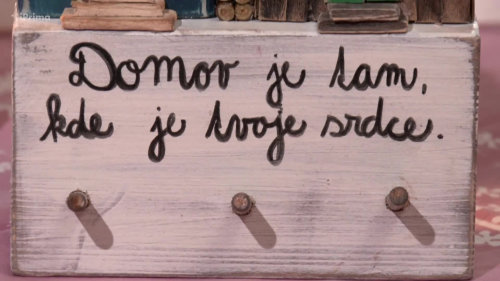 prima
Domov je tam,
kde je tvoje srdce.